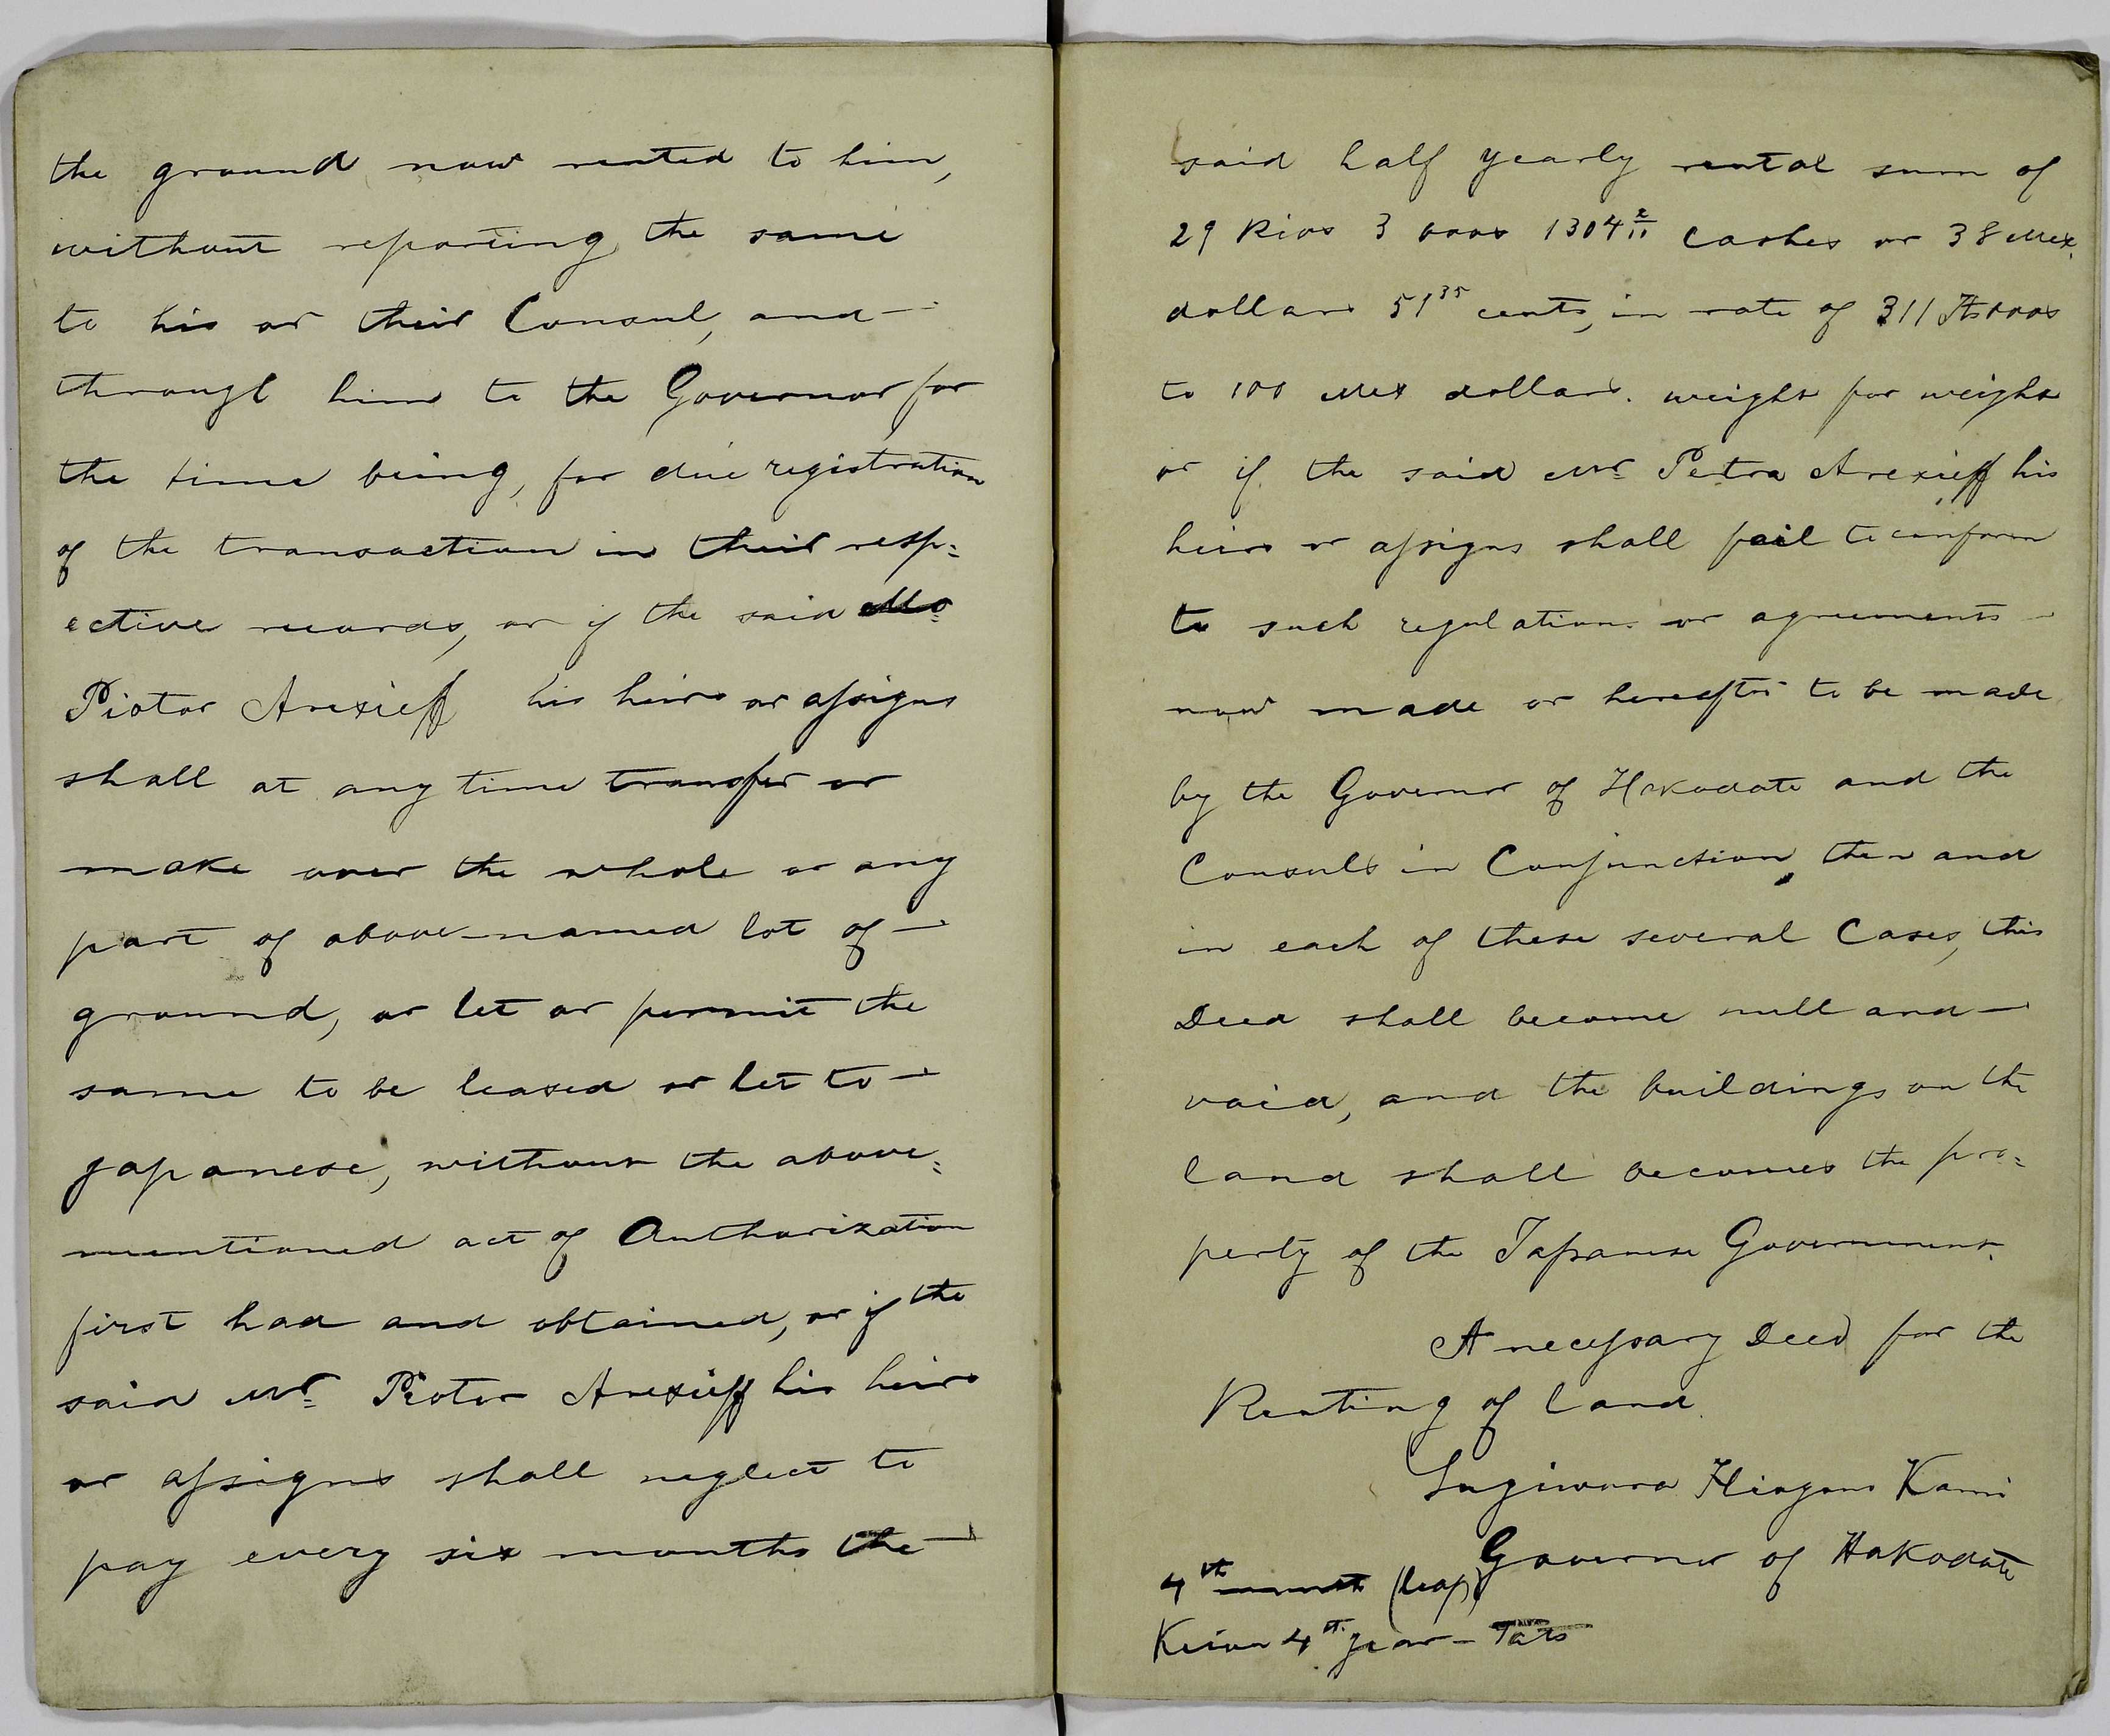 the ground now rented to him,
without reporting the same
to his or their Consul, and —
through him to the Governor for
the time being, for due registration
of the transaction in their resp=
ective records, or if the said Mr
Piotor Arexieff his heirs or assigns
shall at any time transfer or
make over the whole or any
part of above-named lot of —
ground, or let or permit the
same to be leased or let to —
Japanese, without the above=
mentioned act of Authorization
first had and obtained, or if the
said Mr Piotor Arexieff his heirs
or assigns shall neglect to
pay every six months the —
said half yearly rental sum of
29 Rios 3 boos 1304 2/11 Cashes or 38 Mex.
dollars 51 35 cents, in rate of 311 boos
to 100 Mex dollars. weight for weight
or if the said Mr Petra Arexieff his
heirs or assigns shall fail to conform
to such regulations or agreements —
now made or hereafter to be made
by the Governor of Hakodate and the
Consuls in Conjunction, then and
in each of these several Cases, this
Deed shall become null and —
void, and the buildings on the
land shall becomes the pro=
perty of the Japanese Government.
A necessary Deed for the
Renting of Land
Sugiwura Hiogono Kami
Governor of Hakodate
4th month (leap)
Keiou 4th year — Tats